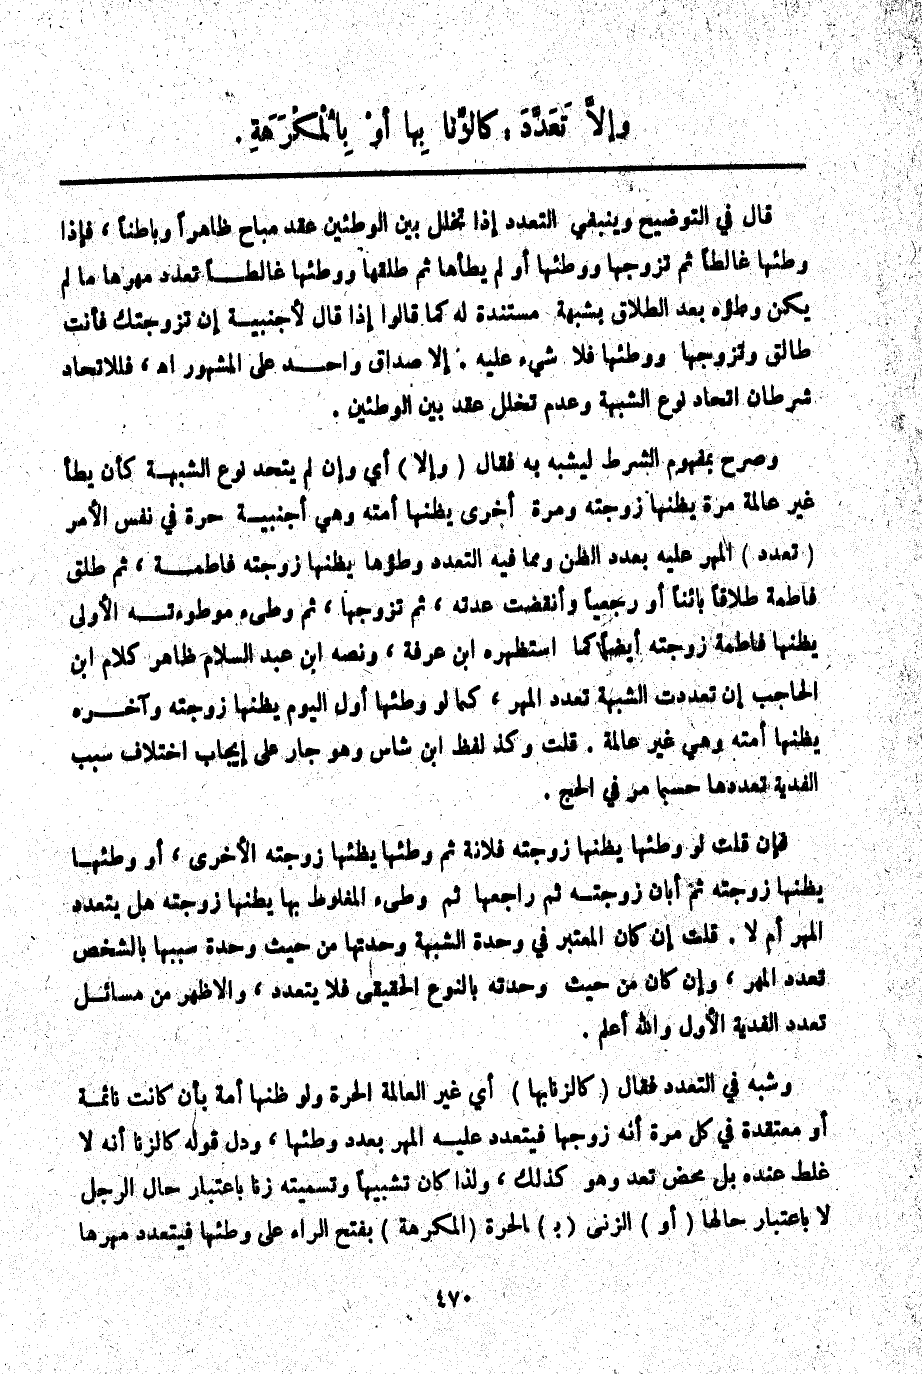 وإلاَّ تَعَدَّدَ ، كالزِّنا بِها أَوْ بِالْمُكْرَهَةِ .
قال في التوضيح وينبغي التعدد إذا تخلل بين الوطئين عقد مباح ظاهراً وباطناً ، فإذا
وطئها غالطاً ثم تزوجها ووطئها أو لم يطأها ثم طلقها ووطئها غالطـــاً تعدد مهرها ما لم
يكن وطؤه بعد الطلاق بشبهة مستندة له كما قالوا إذا قال لأجنبيـة إن تزوجتك فأنت
طالق وتزوجها ووطئها فلا شيء عليه . إلا صداق واحـــد على المشهور اه ، فللاتحاد
شرطان اتحاد نوع الشبهة وعدم تخلل عقد بين الوطئين .
وصرح بمفهوم الشرط ليشبه به فقال ( وإلا ) أي وإن لم يتحد نوع الشبهـة كأن يطأ
غير عالمة مرة يظنها زوجته ومرة أخرى يظنها أمته وهي أجنبيـة حرة في نفس الأمر
( تعدد ) المهر عليه بعدد الظن ومما فيه التعدد وطؤها يظنها زوجته فاطمـــة ، ثم طلق
فاطمة طلاقاً بائناً أو رجعياً وأنقضت عدته ، ثم تزوجها ، ثم وطىء موطوءتـــه الأولى
يظنها فاطمة زوجته أيضاً كما استظهره ابن عرفة ، ونصه ابن عبد السلام ظاهر كلام ابن
الحاجب إن تعددت الشبهة تعدد المهر ، كما لو وطئها أول اليوم يظنها زوجته وآخـــره
يظنها أمته وهي غير عالمة . قلت وكذ لفظ ابن شاس وهو جار على إيجاب اختلاف سبب
الفدية تعددها حسبما مر في الحج .
فإن قلت لو وطئها يظنها زوجته فلانة ثم وطئها يظنها زوجته الأخرى ، أو وطئهـا
يظنها زوجته ثم أبان زوجتـه ثم راجعها ثم وطىء المغلوط بها يظنها زوجته هل يتعدد
المهر أم لا . قلت إن كان المعتبر في وحدة الشبهة وحدتها من حيث وحدة سببها بالشخص
تعدد المهر ، وإن كان من حيث وحدته بالنوع الحقيقى فلا يتعدد ، والاظهر من مسائـل
تعدد الفدية الأول والله أعلم .
وشبه في التعدد فقال ( كالزنابها ) أي غير العالمة الحرة ولو ظنها أمة بأن كانت نائمـة
أو معتقدة في كل مرة أنه زوجها فيتعدد عليـه المهر بعدد وطئها ، ودل قوله كالزنا أنه لا
غلط عنده بل محض تعد وهو كذلك ، ولذا كان تشبيهاً وتسميته زنا باعتبار حال الرجل
لا باعتبار حالها ( أو ) الزنى ( بـ ) الحرة ( المكرهة ) بفتح الراء على وطئها فيتعدد مهرها
٤٧٠